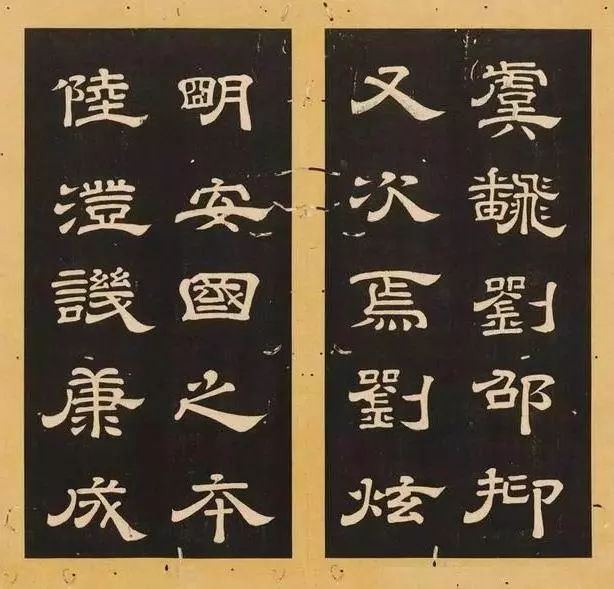 虞飜劉邵抑
又次焉劉炫
明安國之本
陸澄譏康成